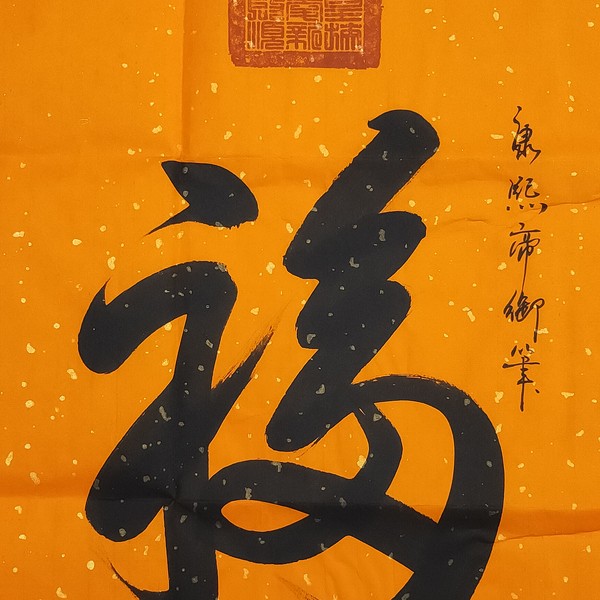 康熙帝御筆
福